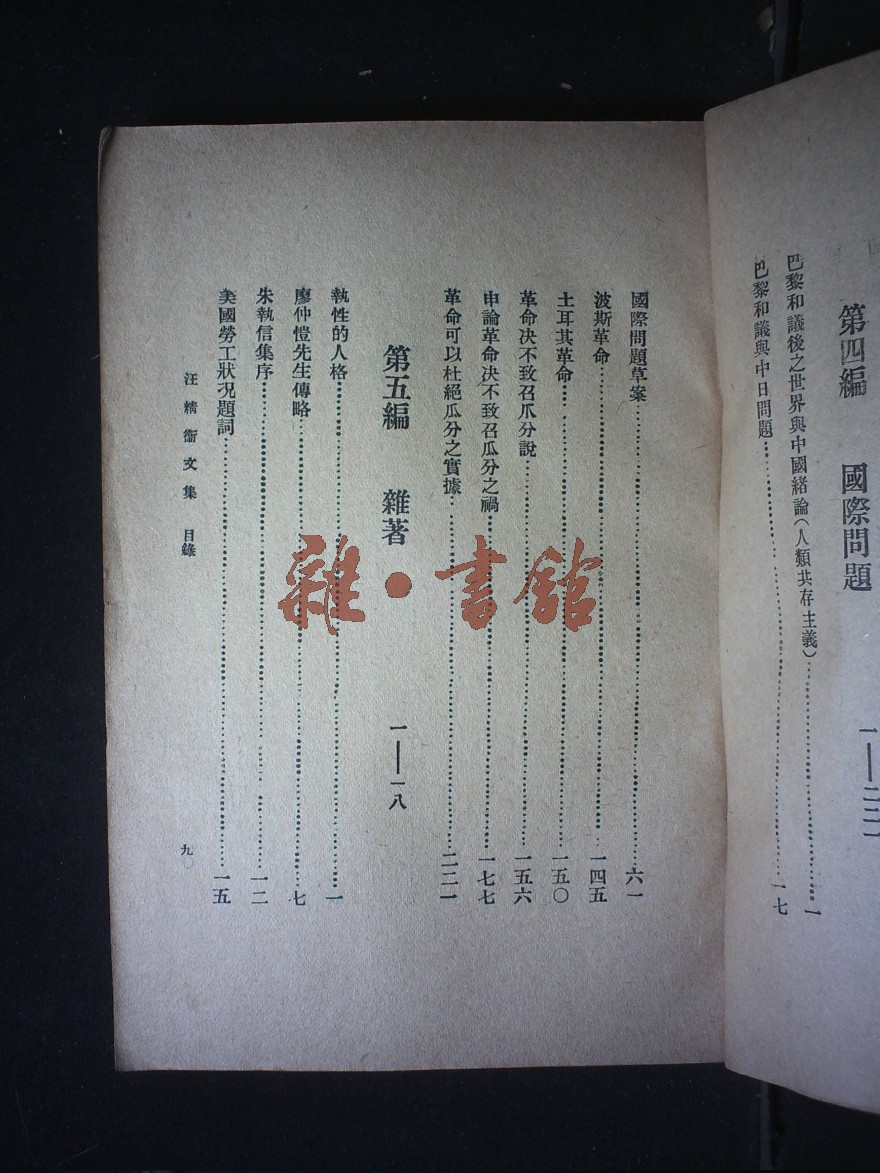 第四編　國際問題　一——二二一
巴黎和議後之世界與中國緒論(人類共存主義)……一
巴黎和議與中日問題……一七
國際問題草案……六一
波斯革命……一四五
土耳其革命……一五〇
革命決不致召爪分說……一五六
申論革命決不致召瓜分之禍……一七七
革命可以杜絕瓜分之實據……二二一
第五編　雜著　一——一八
執性的人格……一
廖仲愷先生傳略……七
朱執信集序……一二
美國勞工狀況題詞……一五
汪精衞文集　目錄
九
雜·書館